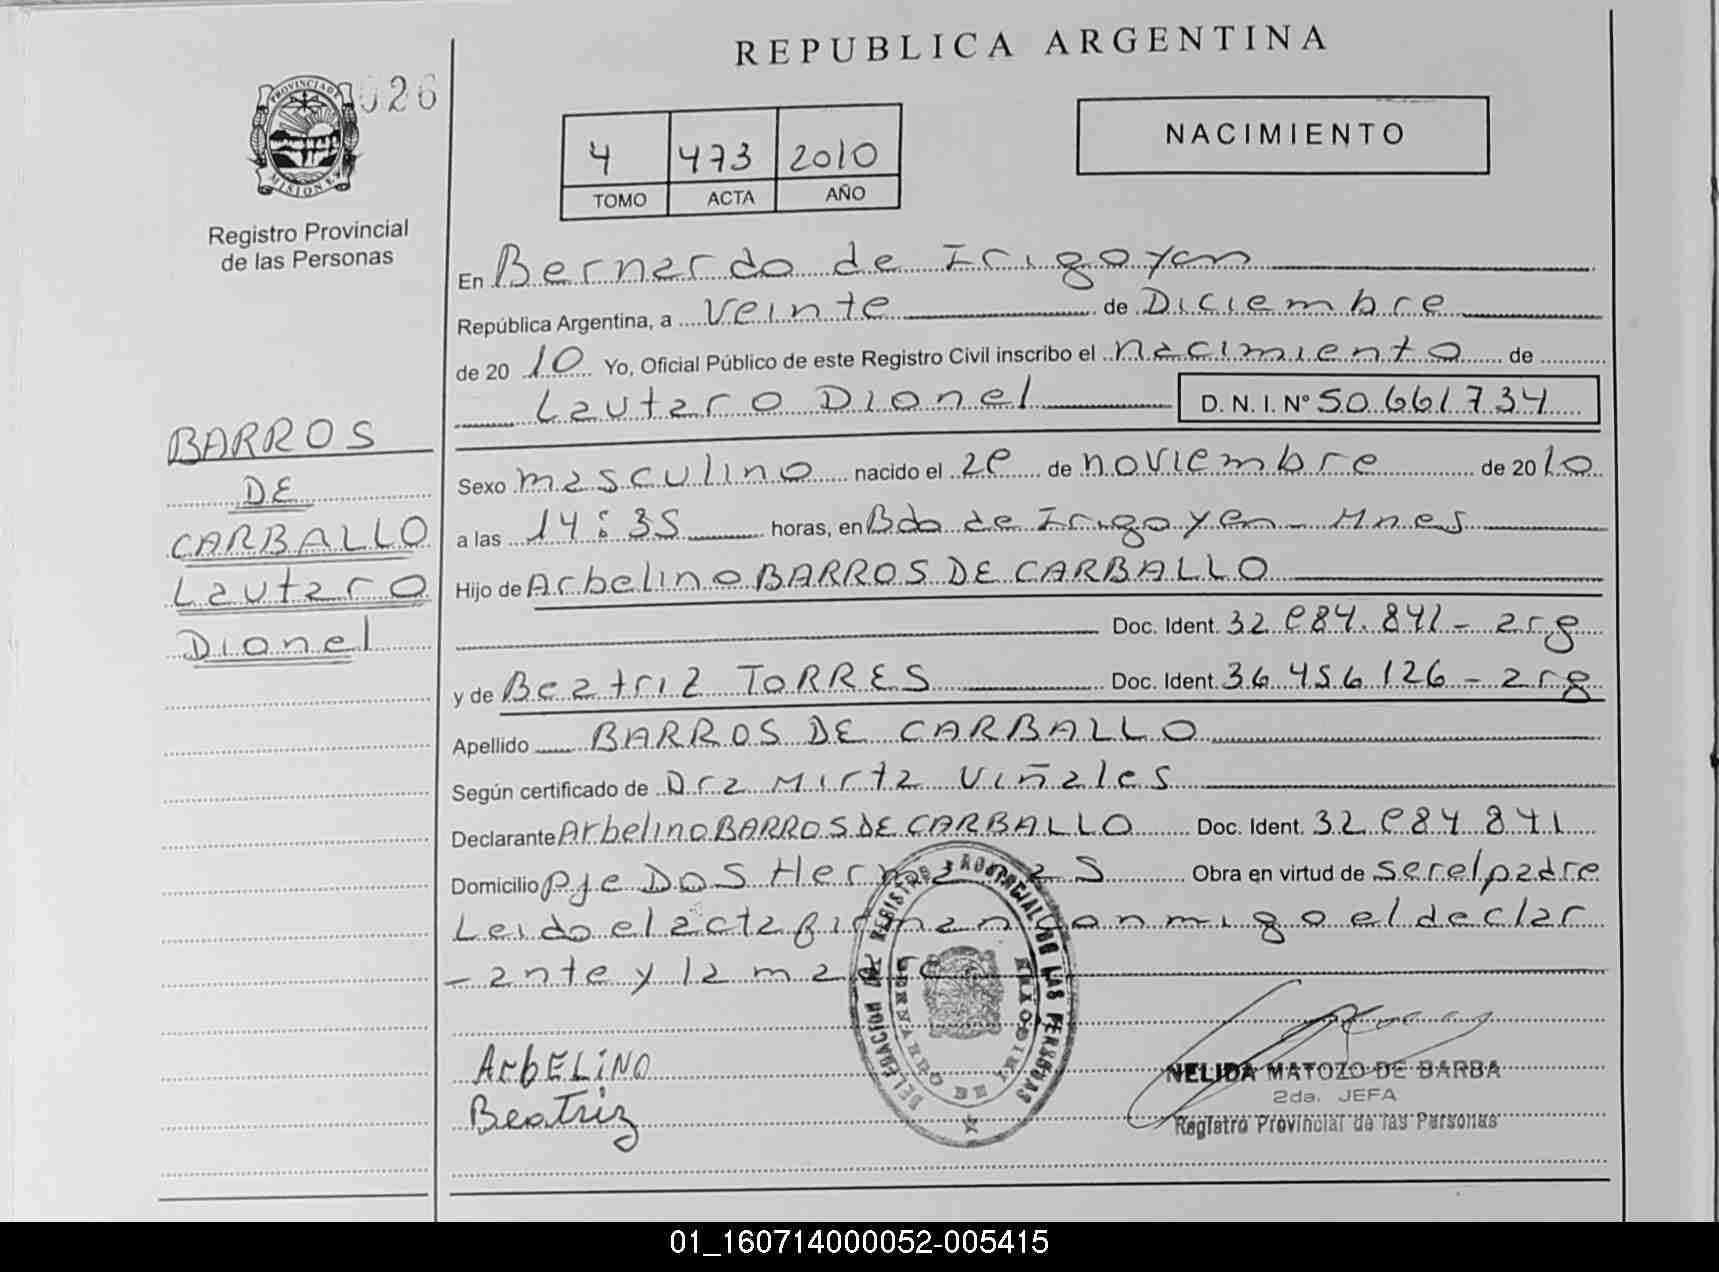 REPUBLICA ARGENTINA
026
PROVINCIA DE MISIONES
Registro Provincial
de las Personas
4 473 2010
TOMO ACTA AÑO
NACIMIENTO
BARROS
DE
CARBALLO
Lautaro
Dionel
En Bernardo de Irigoyen
República Argentina, a Veinte de Diciembre
de 2010 Yo, Oficial Público de este Registro Civil inscribo el nacimiento de
Lautaro Dionel D.N.I. Nº 50.661.734
Sexo masculino nacido el de noviembre de 2010
a las 14:35 horas, en Bdo de Irigoyen - Mnes
Hijo de Arbelino BARROS DE CARBALLO
Doc. Ident. - arg
y de Beatriz TORRES Doc. Ident. 36.456.126 - arg
Apellido BARROS DE CARBALLO
Según certificado de Dra Mirta Viñales
Declarante Arbelino BARROS DE CARBALLO Doc. Ident.
Domicilio Pje Dos Hermanas Obra en virtud de ser el padre
Leido el acta firman conmigo el declar
-ante y la madre
ArbELiNO
Beatriz
DELEGACION DEL REGISTRO PROVINCIAL DE LAS PERSONAS
BERNARDO DE IRIGOYEN
NELIDA MATOZO DE BARBA
2da. JEFA
Registro Provincial de las Personas
01_160714000052-005415